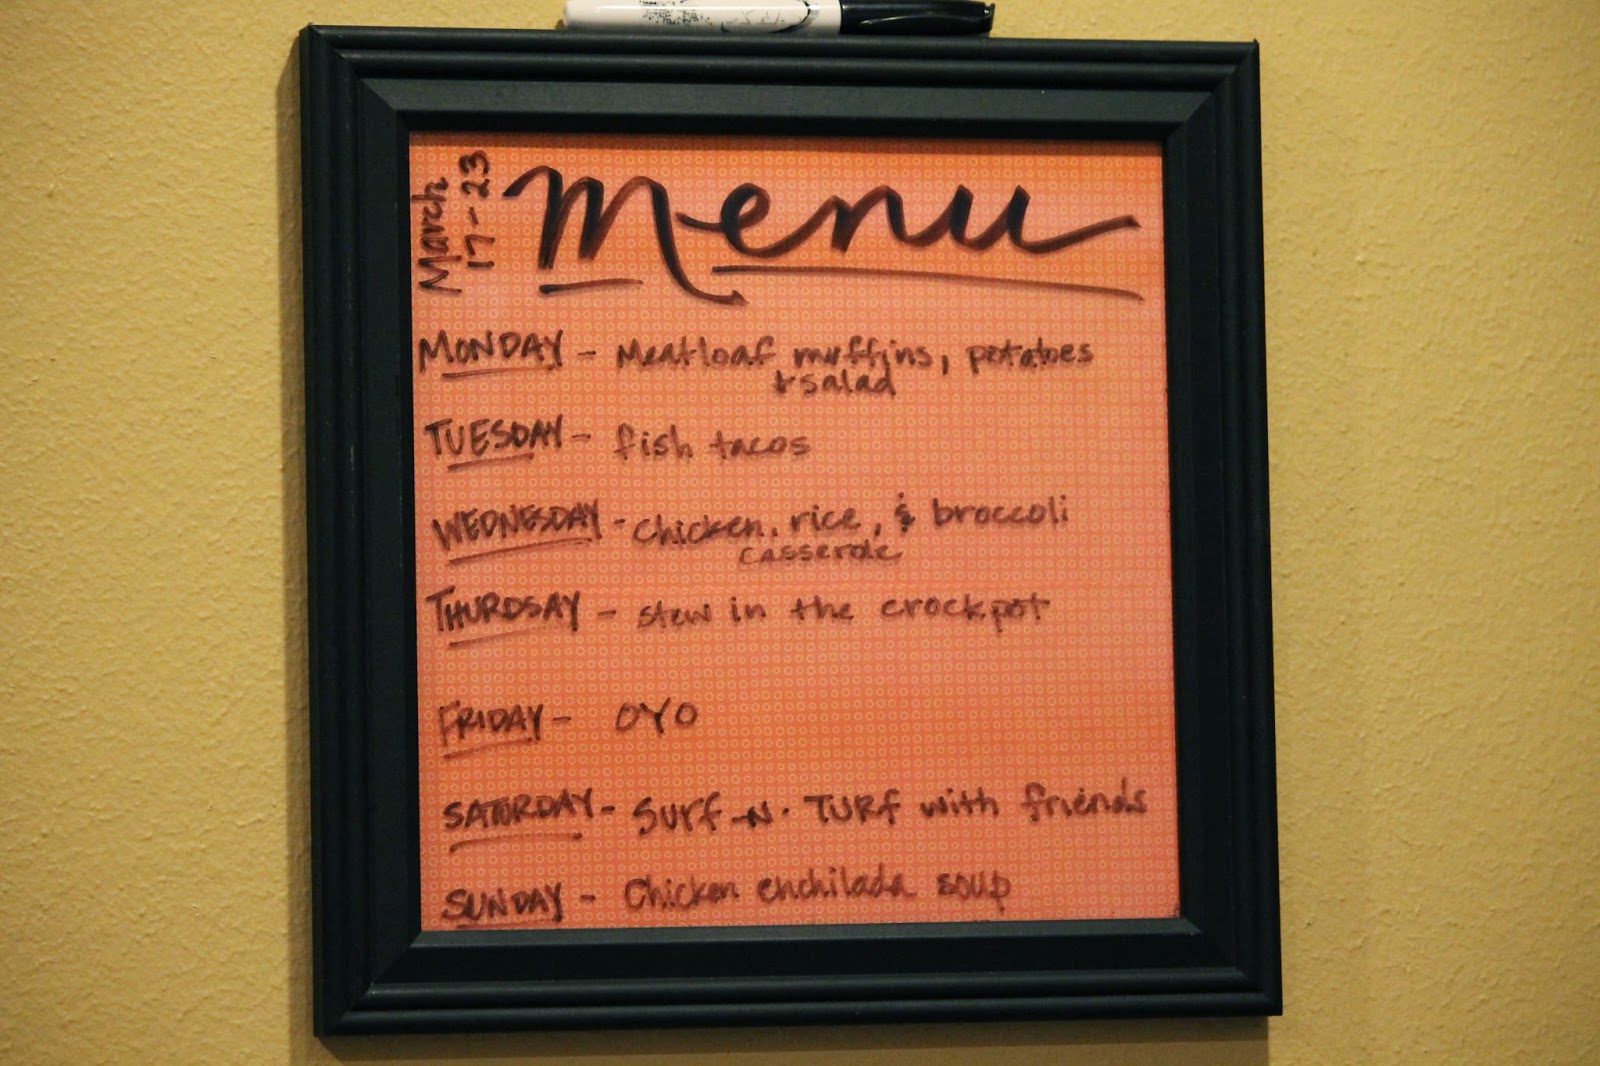 March
17-23
Menu
MONDAY - Meatloaf muffins, potatoes
+ salad
TUESDAY - fish tacos
WEDNESDAY - chicken, rice, & broccoli
casserole
THURDSAY - stew in the crockpot
FRIDAY - OYO
SATURDAY - Surf-N-TURF with friends
SUNDAY - Chicken enchilada soup